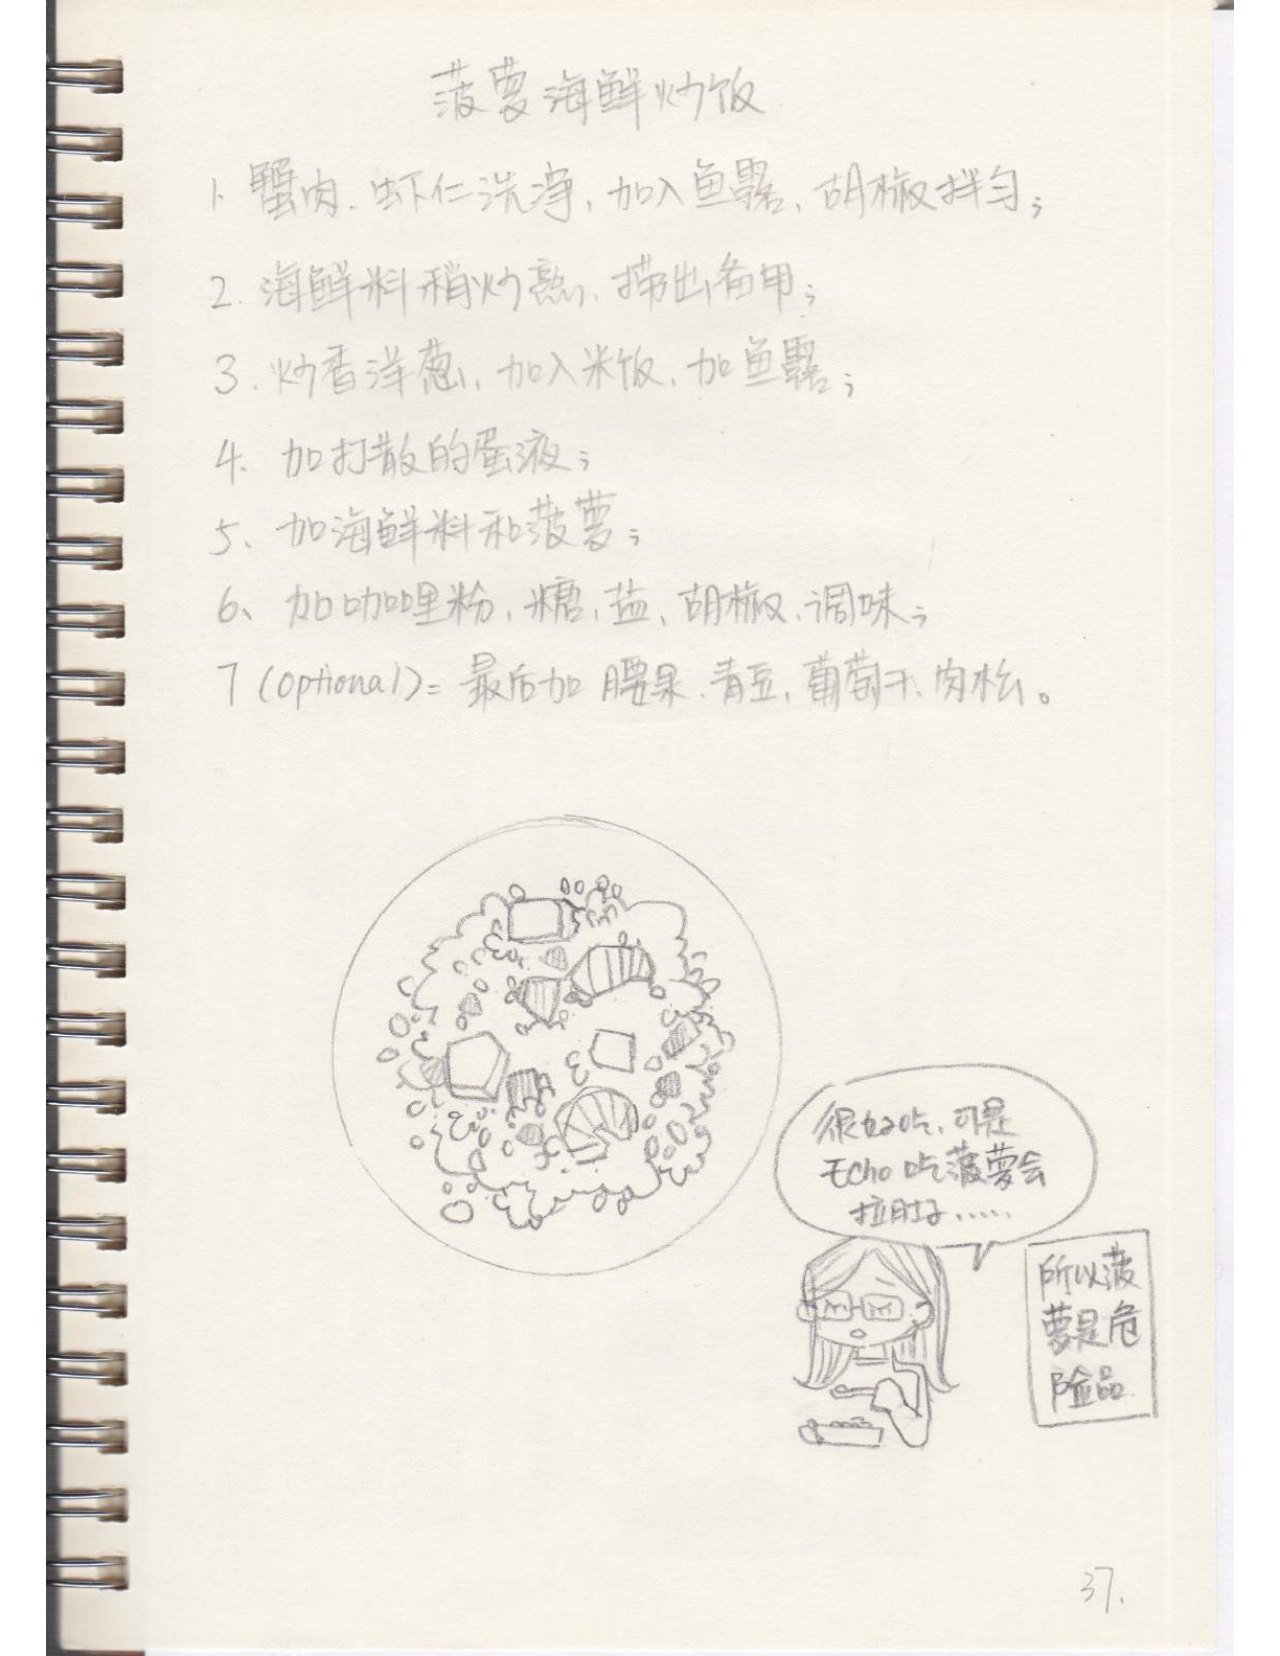 菠萝海鲜炒饭
1. 蟹肉、虾仁洗净，加入鱼露、胡椒拌匀；
2. 海鲜料稍炒熟、捞出备用；
3. 炒香洋葱，加入米饭，加鱼露；
4. 加打散的蛋液；
5、加海鲜料和菠萝；
6、加咖喱粉，糖，盐、胡椒、调味；
7 (optional)= 最后加 腰果、青豆，葡萄干、肉松。
很好吃，可是
Echo吃菠萝会
拉肚子……
所以菠
萝是危
险品
37.